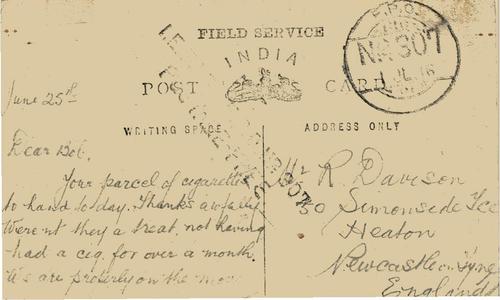 FIELD SERVICE
INDIA
POST CARD
F.P.O.
No 307
1 JL 16
WRITING SPACE
ADDRESS ONLY
June 25th
Dear Bob.
Your parcel of cigarettes
to hand to day. Thanks awfully
Weren't they a treat, not having
had a cig. for over a month.
We are properly on the
Mr R Davison
50 Simonside Tce
Heaton
Newcastle on Tyne
England